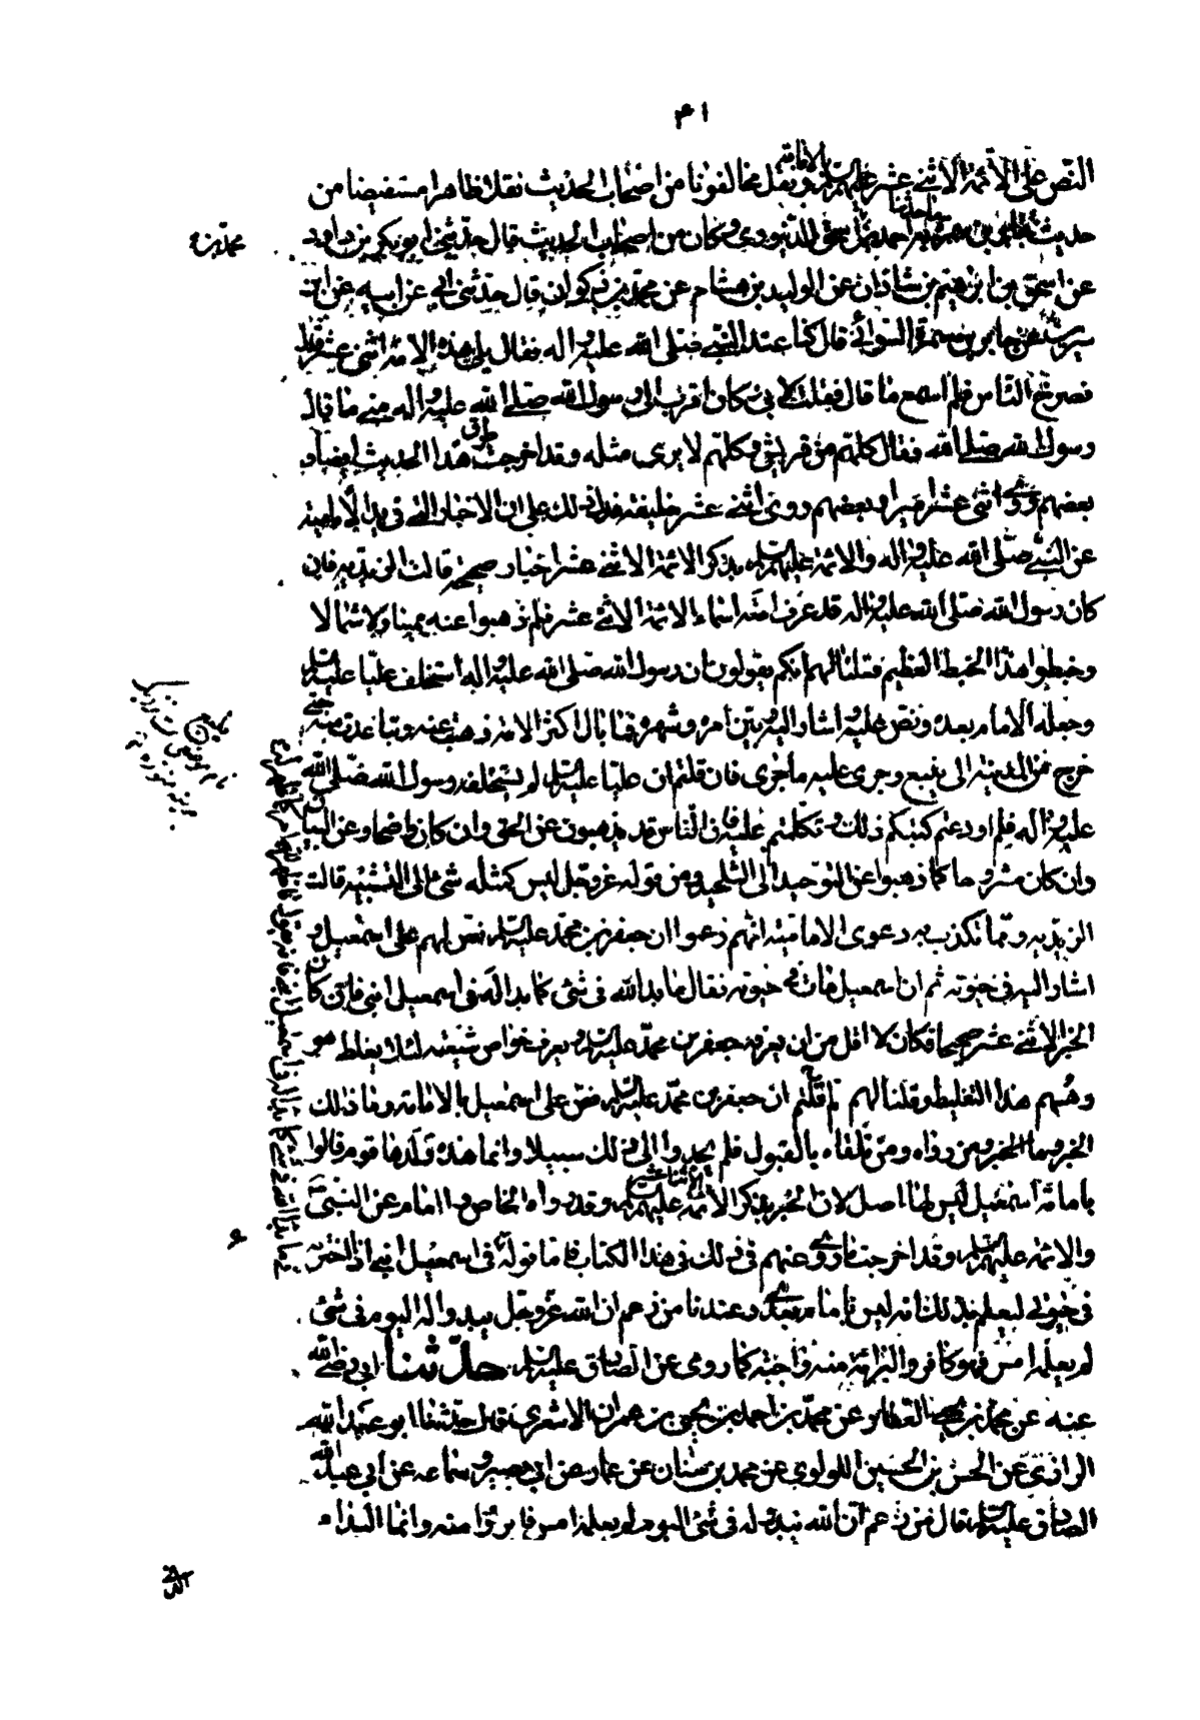 ٤١
النص على الأئمة الاثنى عشر عليهم السلم بالامامة ونقل مخالفونا من اصحاب الحديث نقلا ظاهرا مستفيضا من
حديث جابر بن سمرة ما حدثنا احمد بن اسحق الدينورى وكان من اصحاب الحديث قال حدثنى ابو بكر بن داود
عن اسحق بن ابرهيم بن شاذان عن الوليد بن هشام عن محمد بن ذكوان قال حدثنى ابى عن ابيه عن ابن
سيرين عن جابر بن سمرة السوائى قال كنا عند النبى صلى الله عليه واله فقال يلى هذه الامة اثنى عشر قال
فصرخ الناس فلم اسمع ما قال فقلت لابى وكان اقرب الى رسول الله صلى الله عليه واله منى ما قال
رسول الله صلى الله فقال كلهم من قريش وكلهم لا يرى مثله وقد اخرجت طرق هذا الحديث ايضا و
بعضهم روى اثنى عشر اميرا وبعضهم روى اثنى عشر خليفة فدل ذلك على ان الاخبار التى فى يد الامامية
عن النبى صلى الله عليه واله والائمة عليهم السلم بذكر الائمة الاثنى عشر اخبار صحيحة قالت الزيدية فان
كان رسول الله صلى الله عليه واله قد عرف امته اسماء الائمة الاثنى عشر فلم ذهبوا عنه يمينا وشمالا
وخبطوا هذا الخبط العظيم فقلنا لهم انكم تقولون ان رسول الله صلى الله عليه واله استخلف عليا عليه السلم
وجعله الامام بعده ونص عليه واشار اليه وبين امره وشهره فما بال اكثر الامة ذهبت عنه وتباعدت منه حتى
خرج من المدينة الى ينبع وجرى عليه ما جرى فان قلتم ان عليا عليه السلم لم يستخلفه رسول الله صلى الله
عليه واله فلم اودعتم كتبكم ذلك وتكلمتم عليه فان الناس قد يذهبون عن الحق وان كان واضحا وعن البيان
وان كان مشروحا كما ذهبوا عن التوحيد الى التلحيد ومن قوله عز وجل ليس كمثله شئ الى التشبيه قالت
الزيدية ومما تكذب به دعوى الامامية انهم زعموا ان جعفر بن محمد عليه السلم نص لهم على اسمعيل و
اشار اليه فى حيوته ثم ان اسمعيل مات فى حيوته فقال ما بدا لله فى شئ كما بدا له فى اسمعيل ابنى فان كان
الخبر الاثنى عشر صحيحا فكان لا اقل من ان يعرفه جعفر بن محمد عليه السلم ويعرف خواص شيعته لئلا يغلط هو
وهم هذا التغليط وقلنا لهم بم قلتم ان جعفر بن محمد عليه السلم نص على اسمعيل بالامامة وما ذلك
الخبر وما المخبر ومن رواه ومن تلقاه بالقبول فلم يجدوا الى ذلك سبيلا وانما هذه ولدها قوم قالوا
بامامة اسمعيل ليس لها اصل لان الخبر بذكر الائمة الاثنا عشر عليهم السلم وقد رواه الخاص والعام عن النبى
والائمة عليهم السلم وقد اخرجت ما روى عنهم فى ذلك فى هذا الكتاب فاما قوله فى اسمعيل ابنى اذ اخترمه
فى حيوتى ليعلم بذلك انه ليس بامام بعدى وعندنا من زعم ان الله عز وجل يبدو له اليوم فى شئ
لم يعلمه امس فهو كافر والبرائة منه واجبة كما روى عن الصادق عليه السلم حدثنا ابى رضى الله
عنه عن محمد بن يحيى العطار عن محمد بن احمد بن يحيى بن عمران الاشعرى قال حدثنا ابو عبد الله
الرازى عن الحسن بن الحسين اللولوى عن محمد بن سنان عن عمار عن ابى بصير وسماعه عن ابى عبد الله
الصادق عليه السلم قال من زعم ان الله يبدو له فى شئ اليوم لم يعلمه امس فابرؤا منه وانما البداء
محمد بن